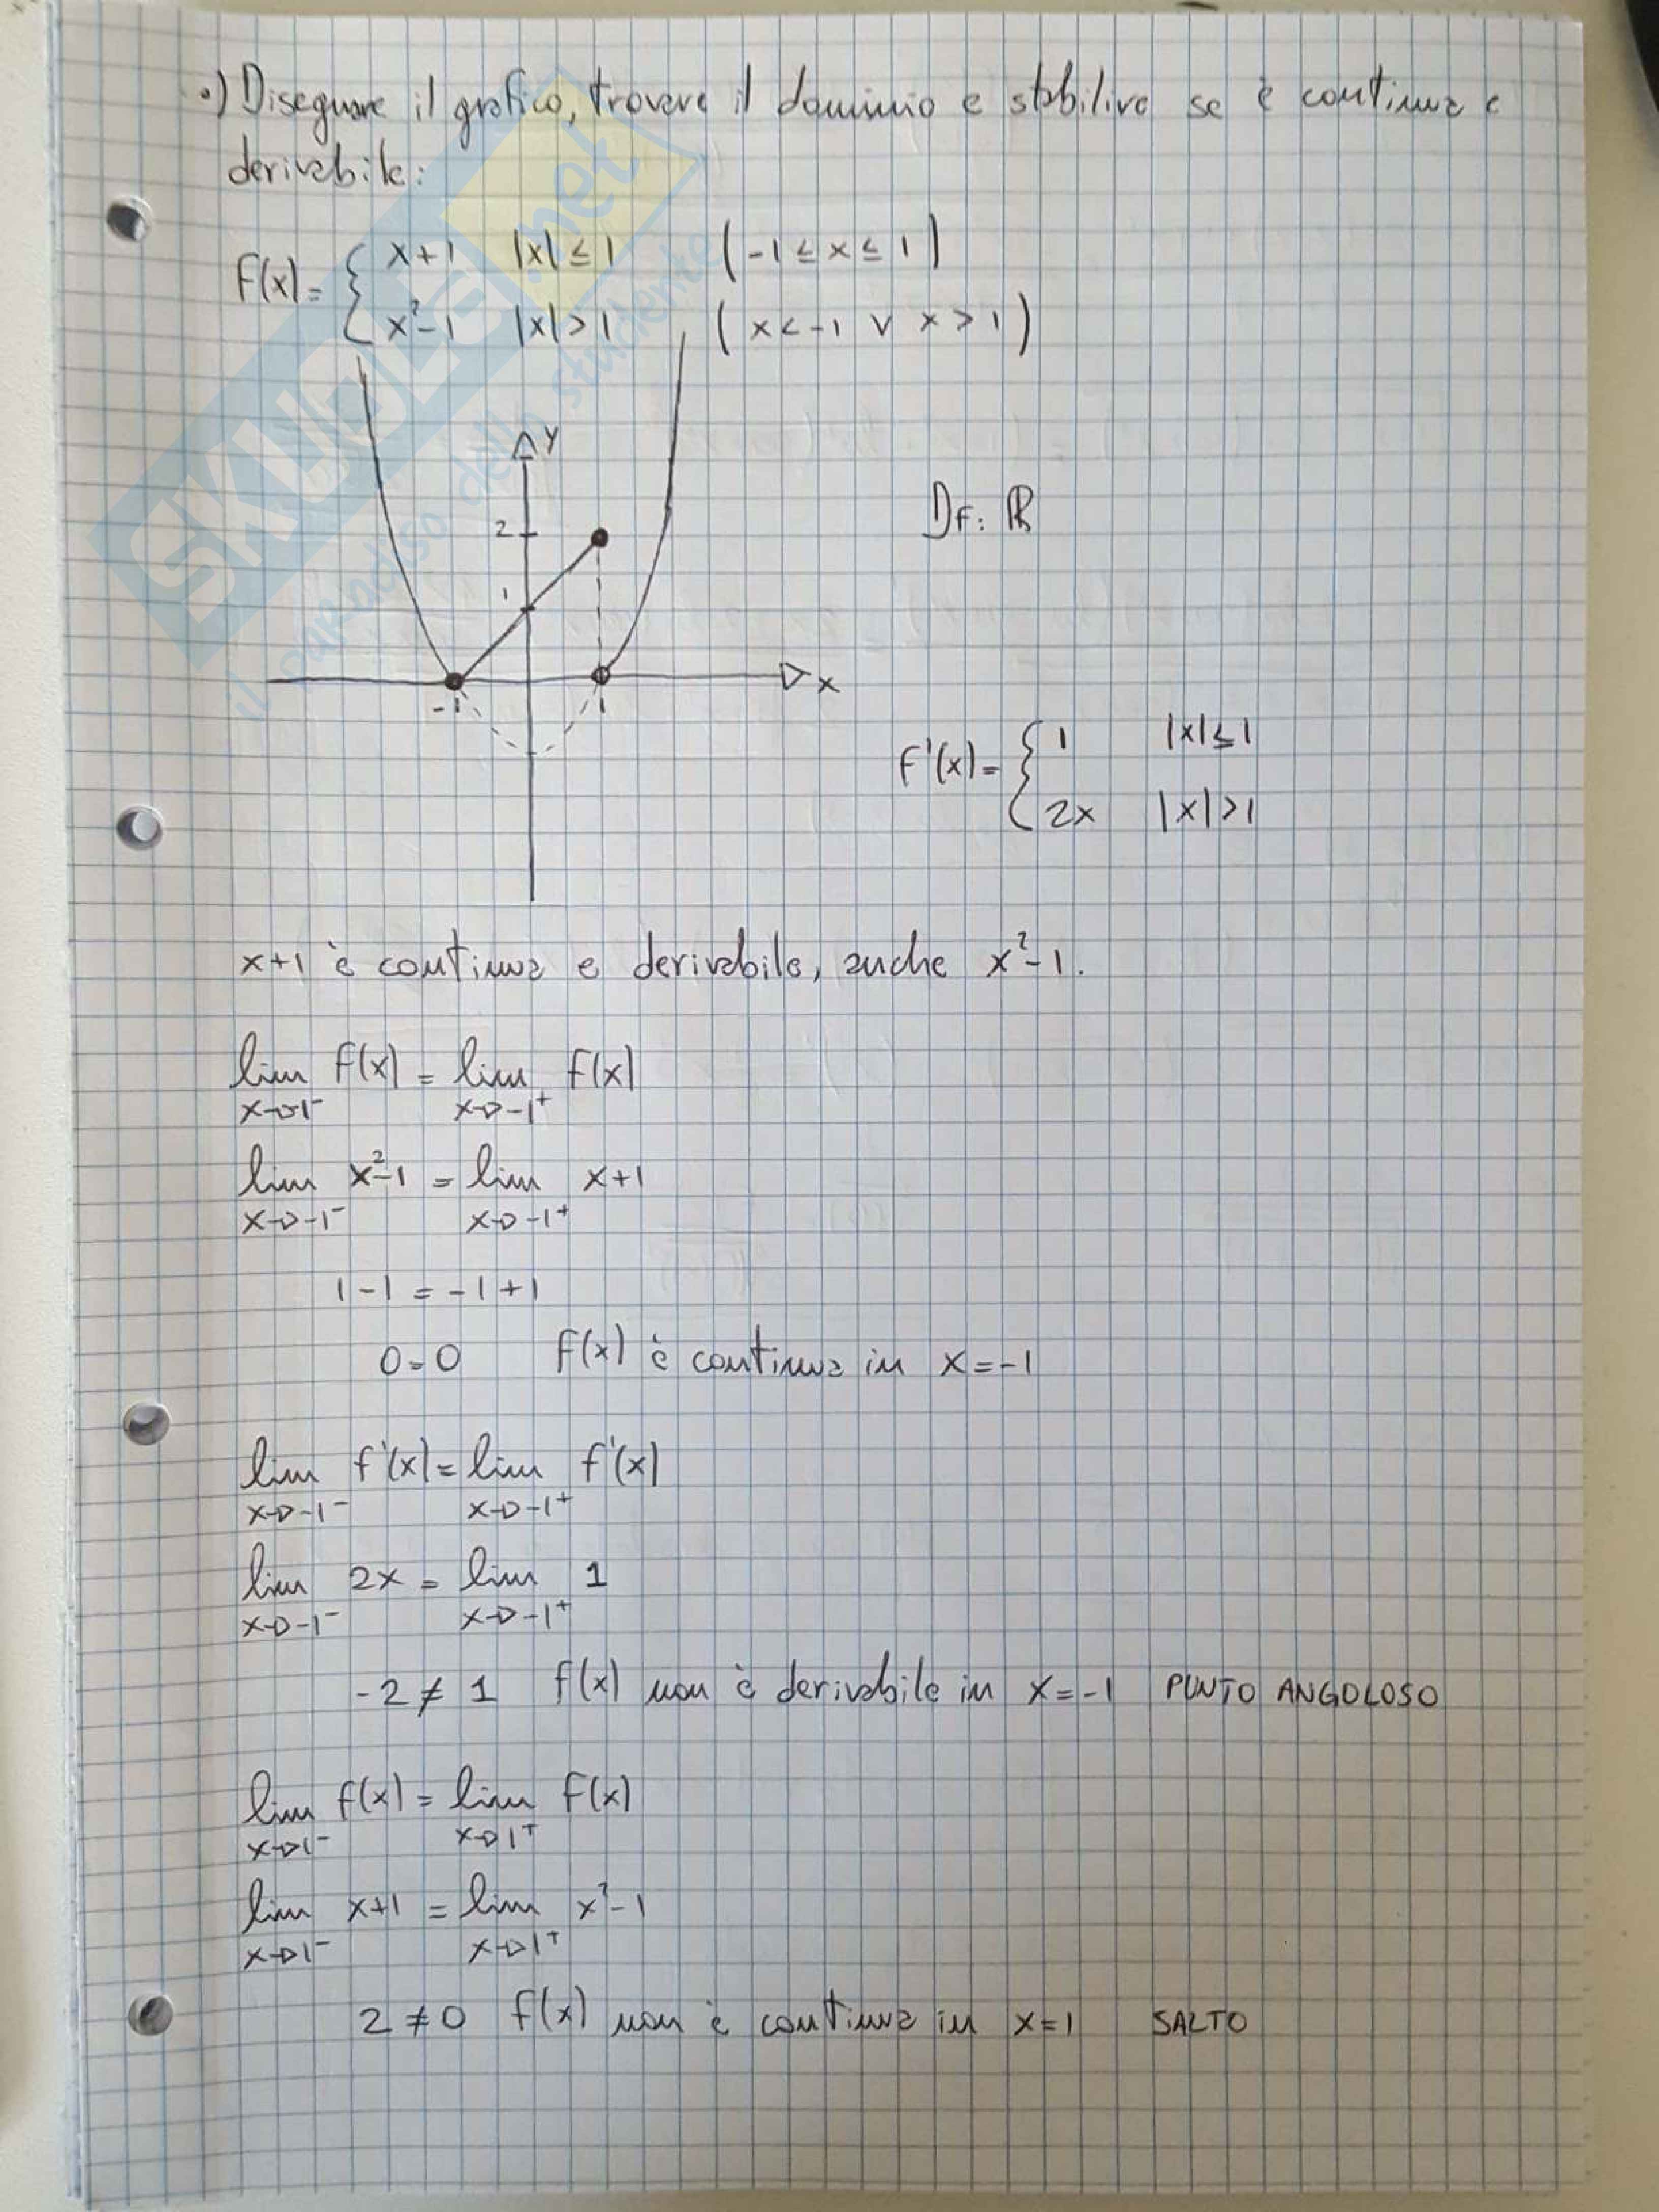 •) Disegnare il grafico, trovare il dominio e stabilire se è continua e
derivabile:
F(x)= { x+1 |x|≤1 (-1≤x≤1)
x²-1 |x|>1 (x<-1 ∨ x>1)
y
2
1
-1 1 x
DF: ℝ
F'(x)= { 1 |x|≤1
2x |x|>1
x+1 è continua e derivabile, anche x²-1.
lim F(x) = lim F(x)
x→-1⁻ x→-1⁺
lim x²-1 = lim x+1
x→-1⁻ x→-1⁺
1-1 = -1+1
0=0 F(x) è continua in x=-1
lim f'(x) = lim f'(x)
x→-1⁻ x→-1⁺
lim 2x = lim 1
x→-1⁻ x→-1⁺
-2 ≠ 1 f(x) non è derivabile in x=-1 PUNTO ANGOLOSO
lim f(x) = lim F(x)
x→1⁻ x→1⁺
lim x+1 = lim x²-1
x→1⁻ x→1⁺
2 ≠ 0 f(x) non è continua in x=1 SALTO
SKUOLA.net
il paradiso dello studente